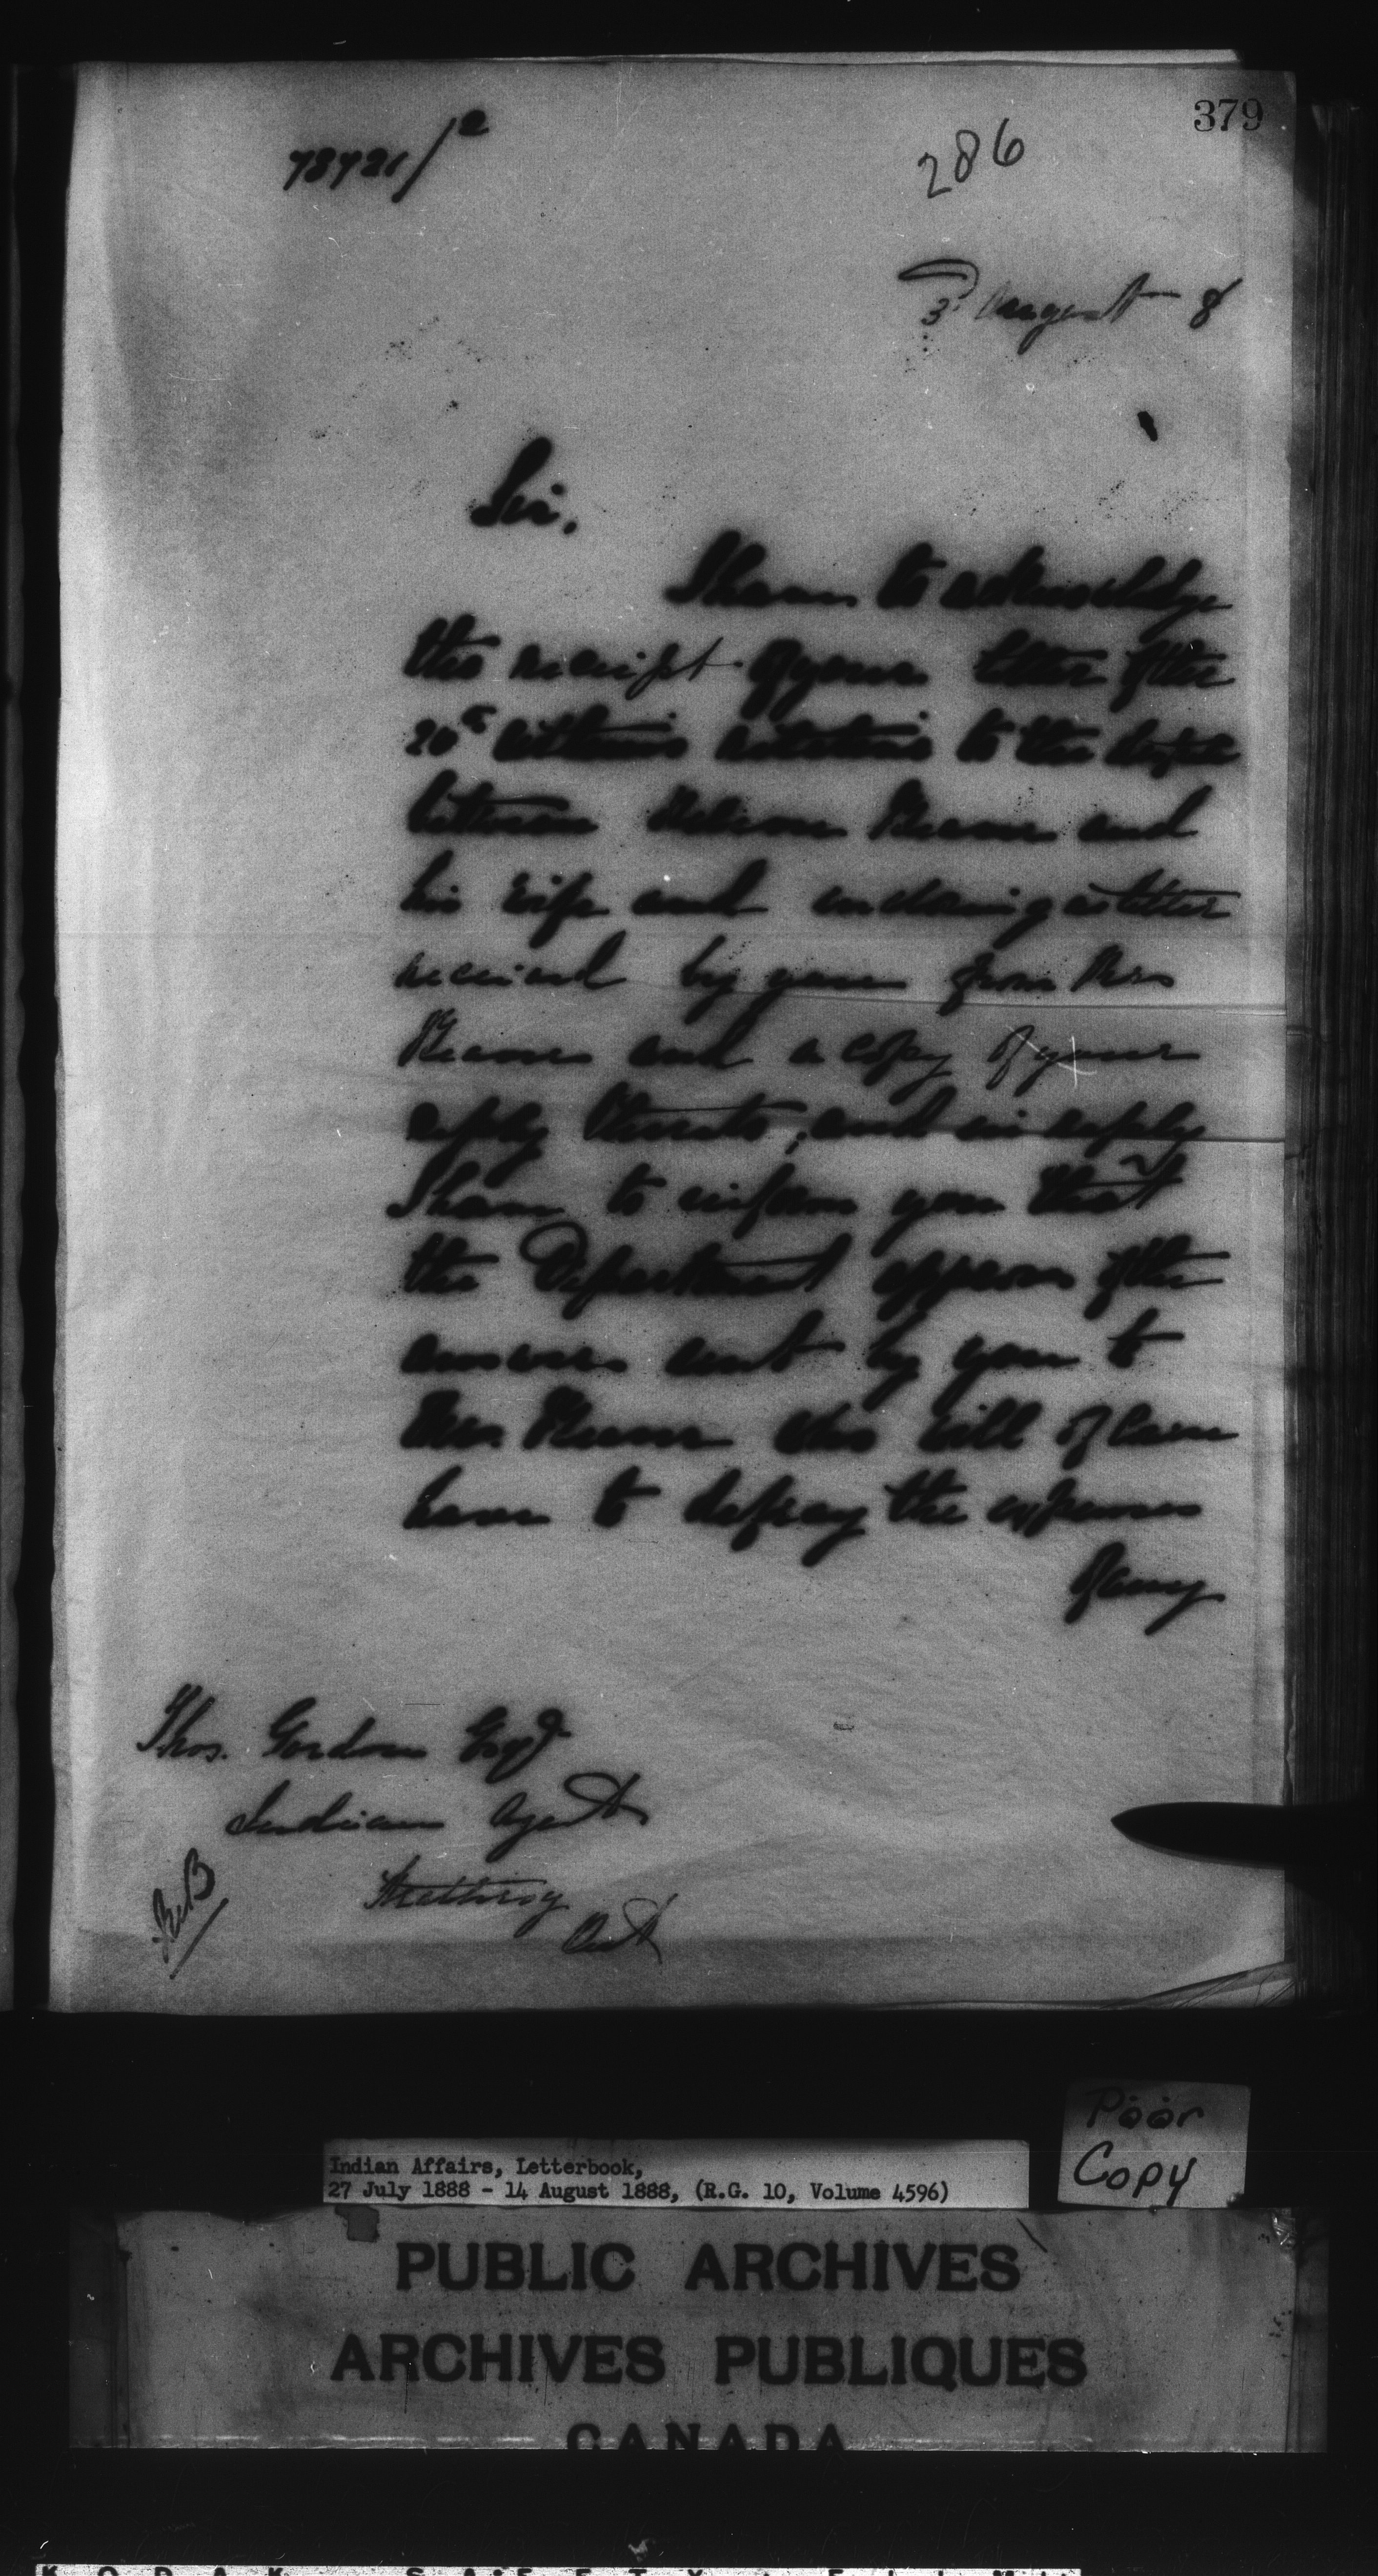 379
286
3 August 8
Sir,
I have to acknowledge
the receipt of your letter of the
26th ultimo relative to the
between and
his wife and enclosing a letter
received by you from Mrs
and a copy of your
reply thereto, and in reply
I have to inform you that
the Department approves of the
answer sent by you to
Mrs. who will of course
have to defray the expenses
of any
Thos. Gordon Esqr
Indian Agent
Strathroy
Ont
Poor
Copy
Indian Affairs, Letterbook,
27 July 1888 - 14 August 1888, (R.G. 10, Volume 4596)
PUBLIC ARCHIVES
ARCHIVES PUBLIQUES
CANADA